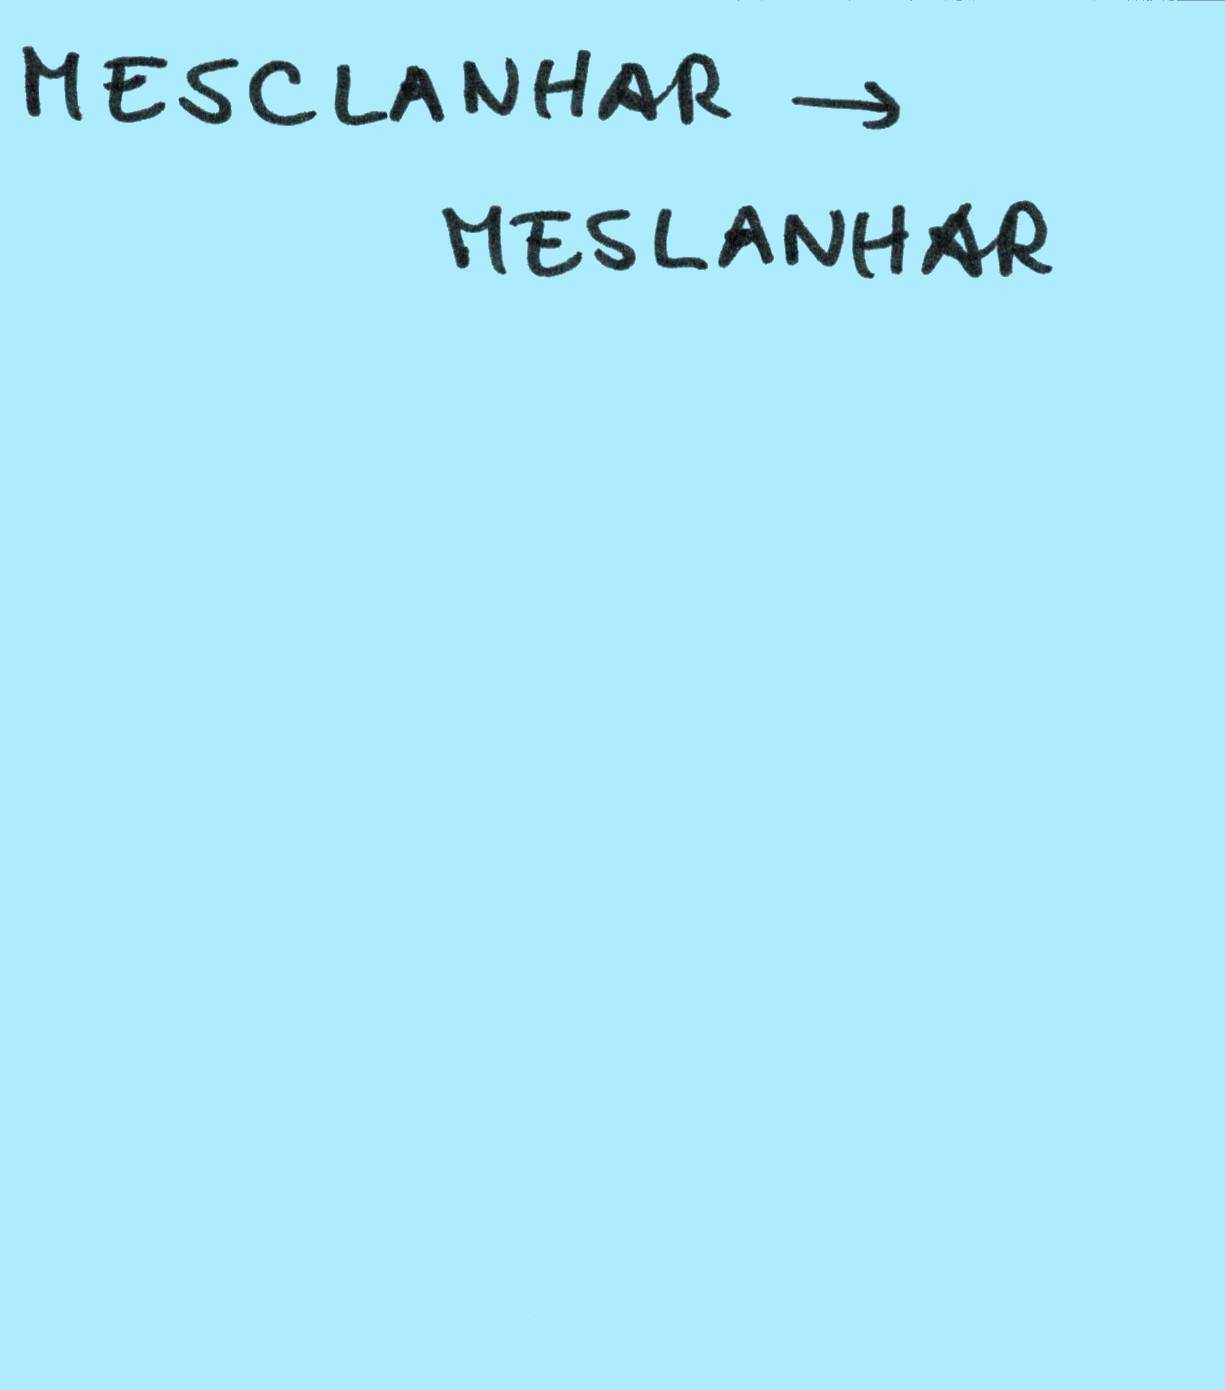 MESCLANHAR →
MESLANHAR